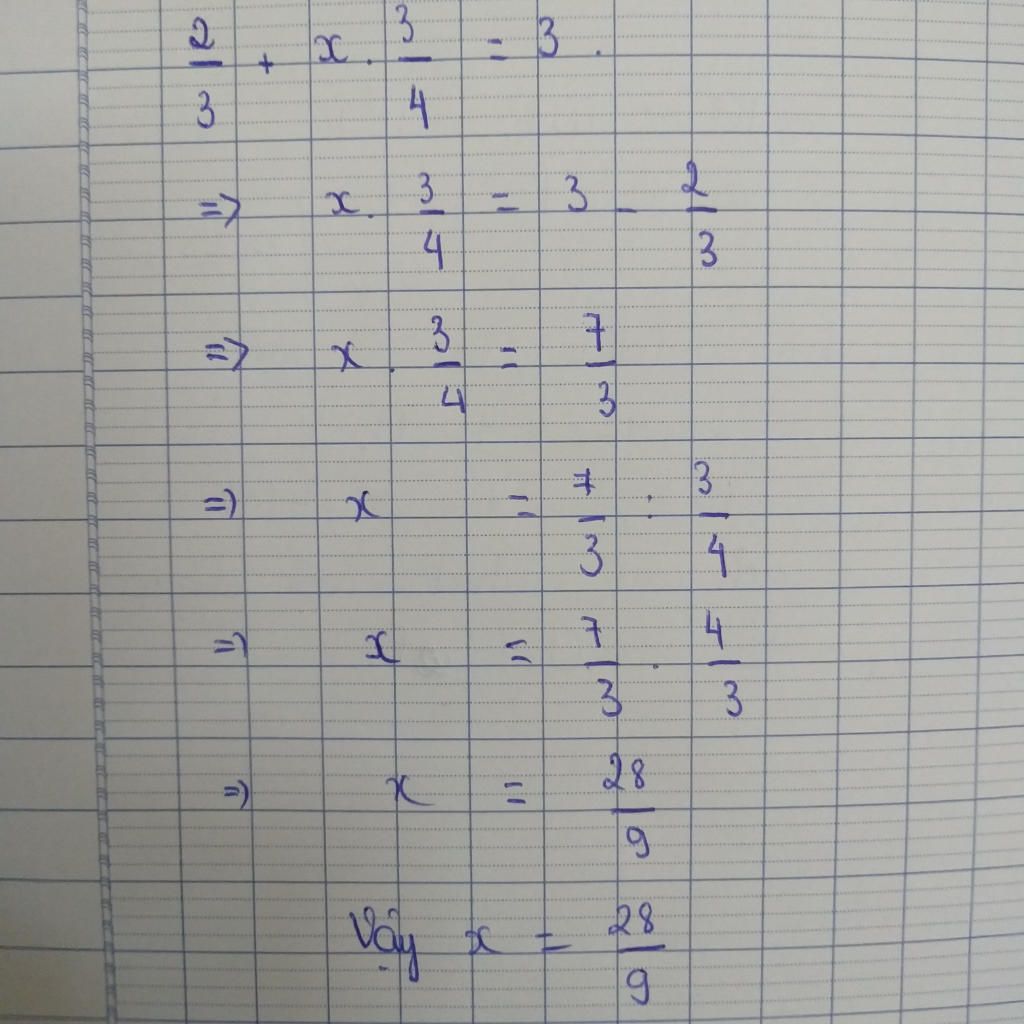 2/3 + x . 3/4 = 3 .
=> x . 3/4 = 3 - 2/3
=> x . 3/4 = 7/3
=> x = 7/3 : 3/4
=> x = 7/3 . 4/3
=> x = 28/9
Vậy x = 28/9